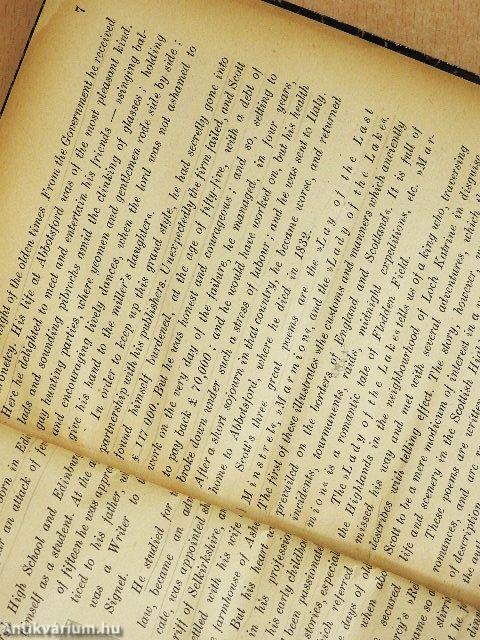 7
knight of the olden times. From the Government he received
baronetcy. His life at Abbotsford was of the most pleasant kind.
Here he delighted to meet and entertain his friends — singing bal-
lads and sounding pibrochs amid the clinking of glasses; holding
gay hunting parties, where yeomen and gentlemen rode side by side;
and encouraging lively dances, when the lord was not ashamed to
give his hand to the miller's daughters.
In order to keep up this grand style, he had secretly gone into
partnership with his publishers. Unexpectedly the firm failed, and Scott
found himself burdened, at the age of fifty-five, with a debt of
£ 117 000. But he was honest and courageous; and so, setting to
work on the very day of the failure, he managed, in four years,
to pay back £ 70,000; and he would have worked on, but his health
broke down under such a stress of labour; and he was sent to Italy.
After a short sojourn in that country, he became worse, and returned
home to Abbotsford, where he died in 1832.
Scott's three great poems are the »Lay of the Last
Minstrel«, »Marmion«, and the »Lady of the Lake«.
The first of these illustrates the customs and manners which anciently
prevailed on the borders of England and Scotland. It is full of
incidents, tournaments, raids, midnight expeditions, etc. »Mar-
mion« is a romantic tale of Flodden Field.
The »Lady of the Lake« tells us of a king who, traversing
the Highlands in the neighbourhood of Loch Katrine in disguise
missed his way and met with several adventures, which
describes with telling effect. The story, however,
Scott to be a mere modicum of interest in a
life and scenery in the Scottish High
These poems are written
romances, and are
of description
born in Ed
an attack of fe
High School and Edinbur
himself as a student. At the a
of fifteen he was appre
ticed to his father
was a Writer to
Signet.
He studied for
law, became an
cate, was appointed
riff of Selkirkshire,
settled with his wife
farmhouse of Ash
But his heart
in his profession
his early childhood
been passionate
stories especial
which referred
days of old
when
secured